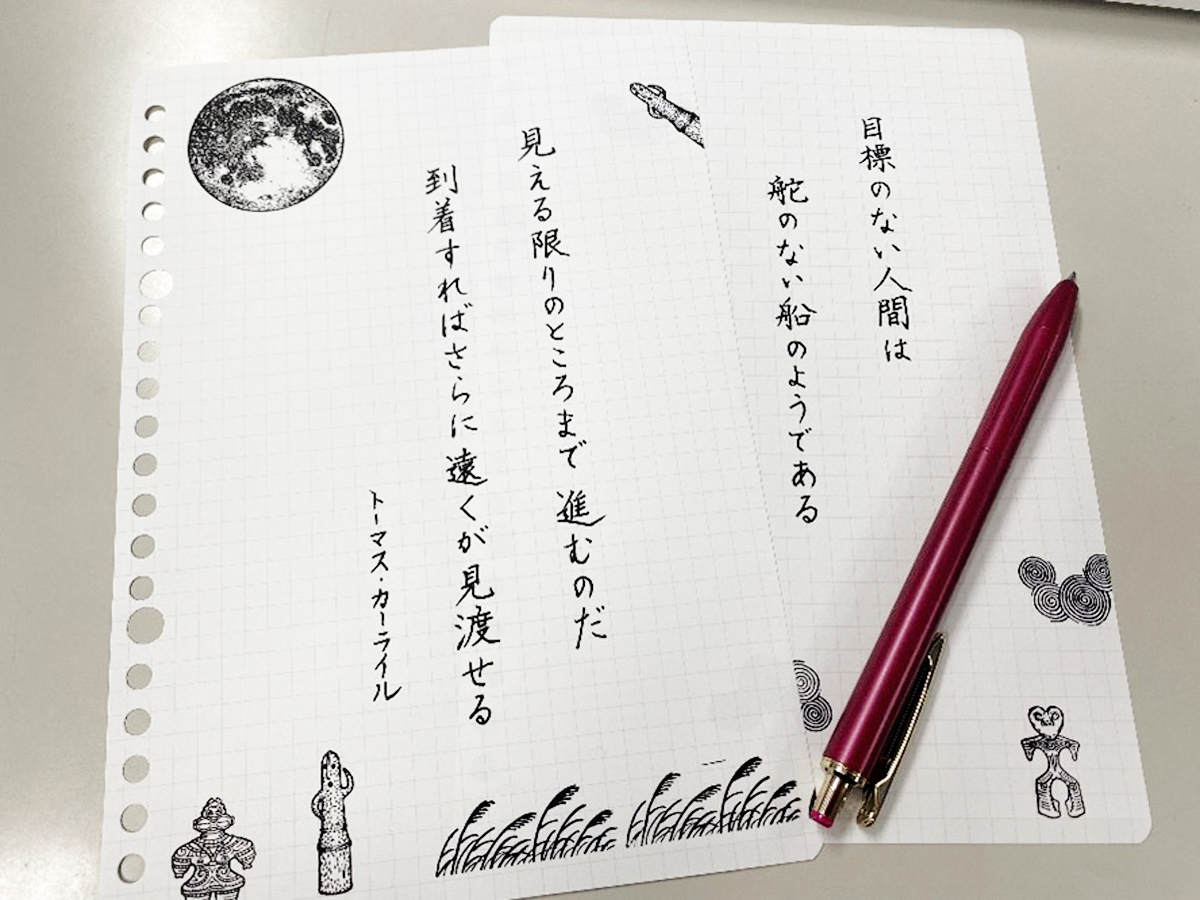 目標のない人間は
舵のない船のようである
見える限りのところまで進むのだ
到着すればさらに遠くが見渡せる
トーマス・カーライル